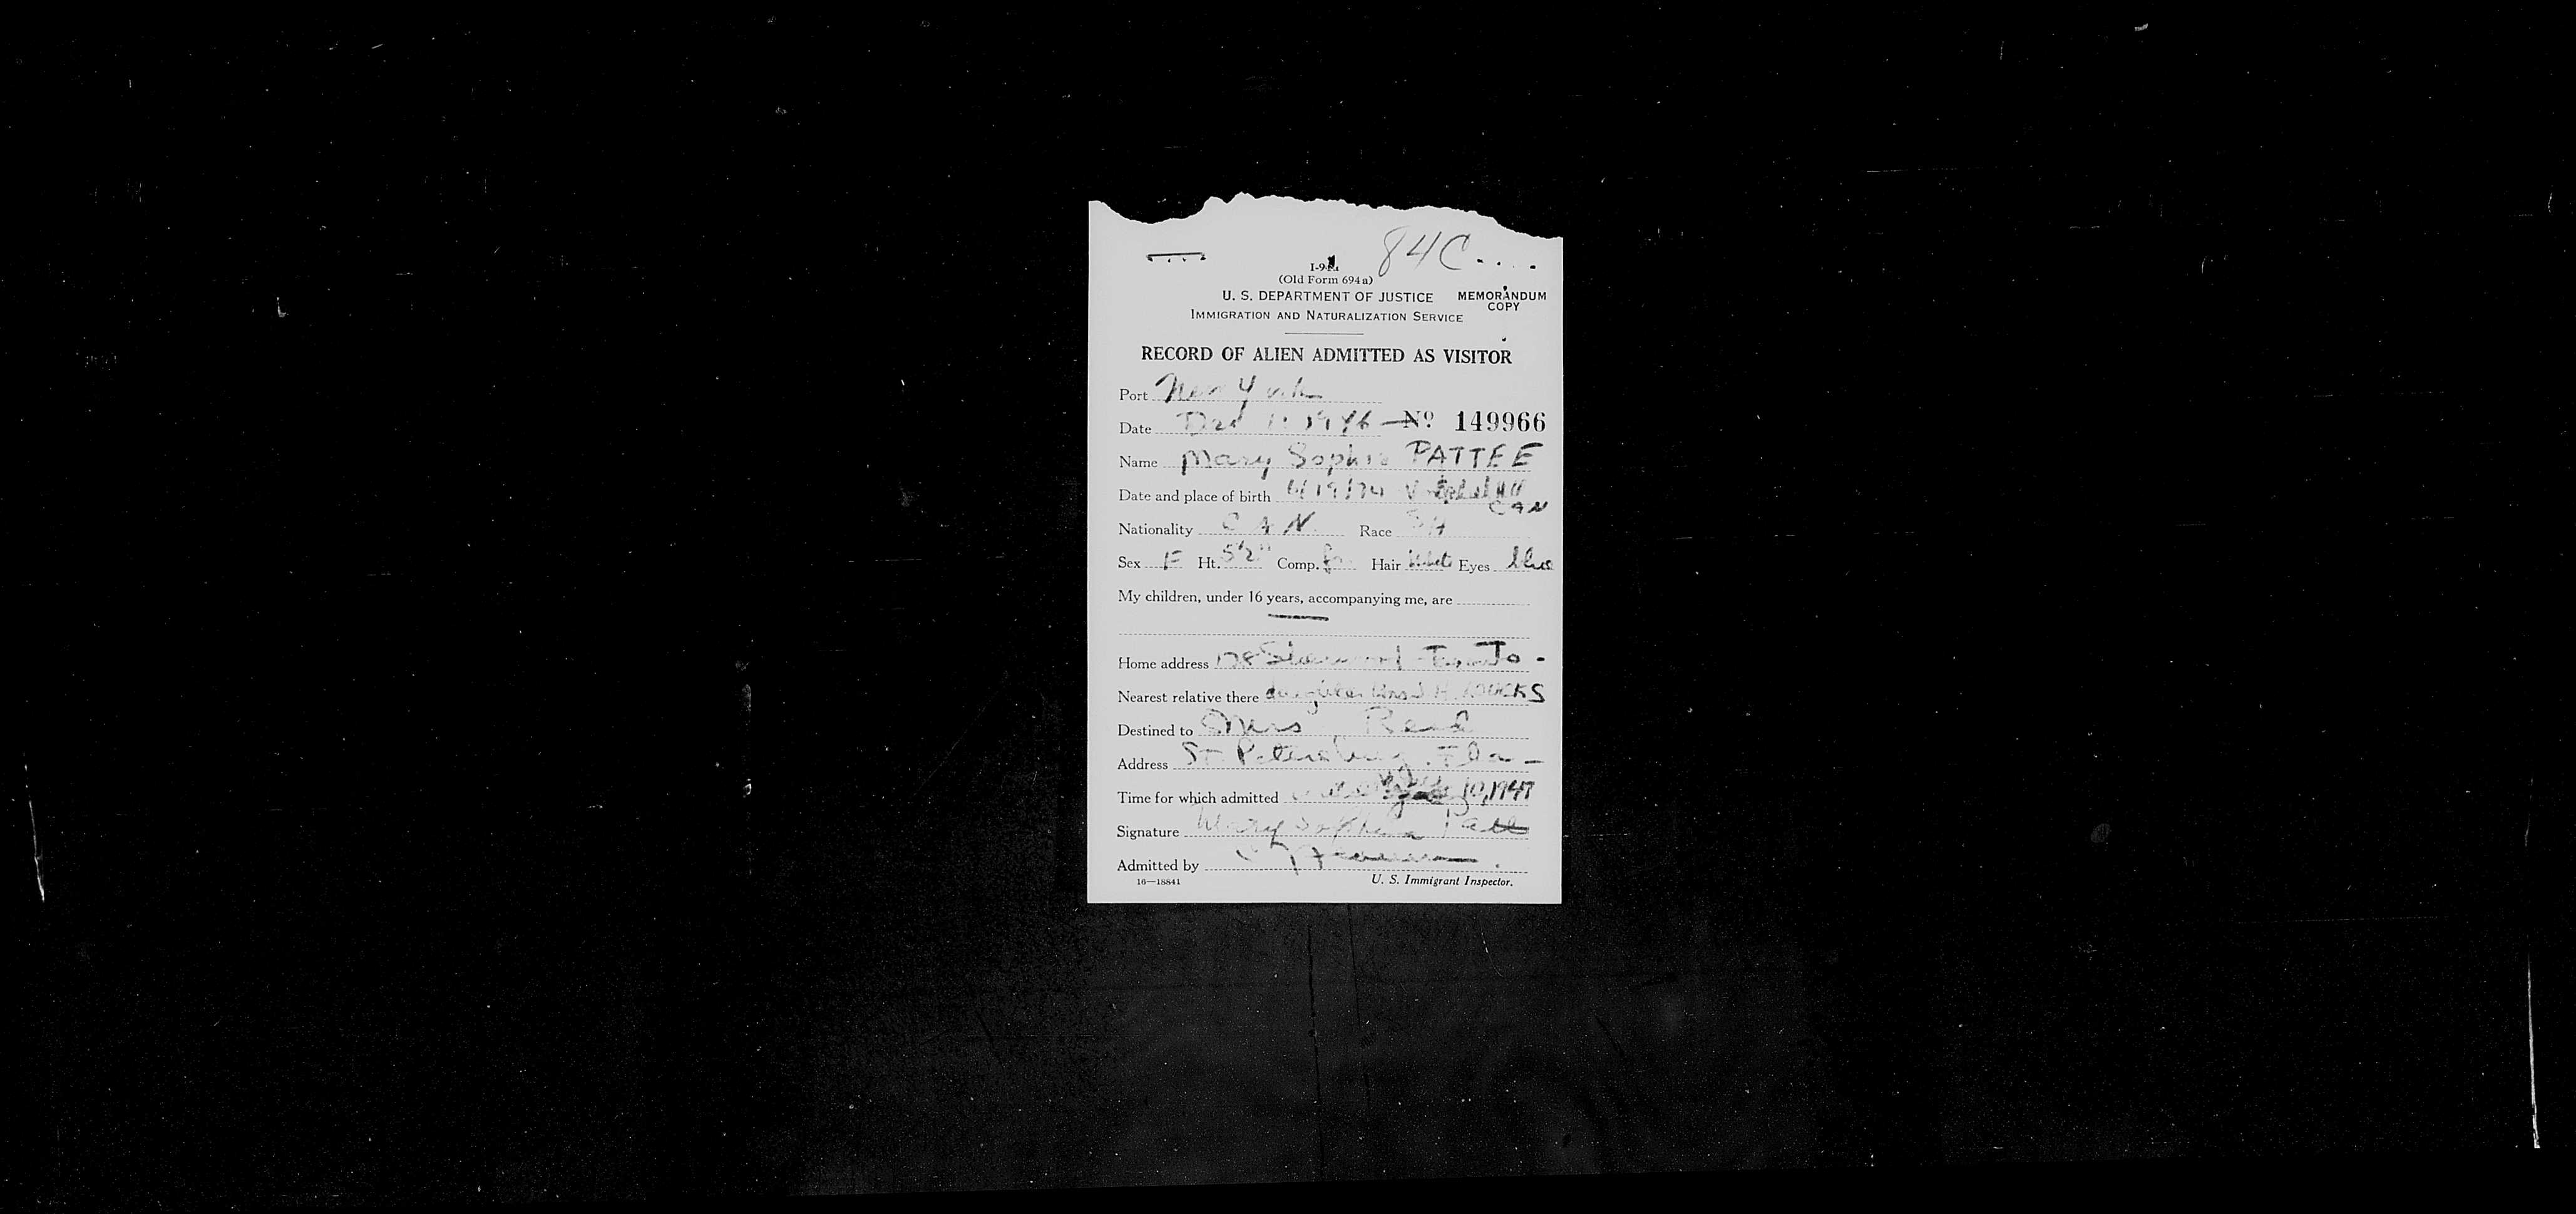 84C....
I-94a
(Old Form 694a)
U. S. DEPARTMENT OF JUSTICE MEMORANDUM COPY
IMMIGRATION AND NATURALIZATION SERVICE
RECORD OF ALIEN ADMITTED AS VISITOR
Port New York
Date 1946 No 149966
Name Mary Sophia PATTEE
Date and place of birth CAN
Nationality CAN Race
Sex F Ht. 5'2" Comp. Hair White Eyes blue
My children, under 16 years, accompanying me, are
Home address Toronto -
Nearest relative there daughter Mrs
Destined to Mrs
Address St. Petersburg Fla -
Time for which admitted 10, 1947
Signature Mary
Admitted by
16—18841 U. S. Immigrant Inspector.